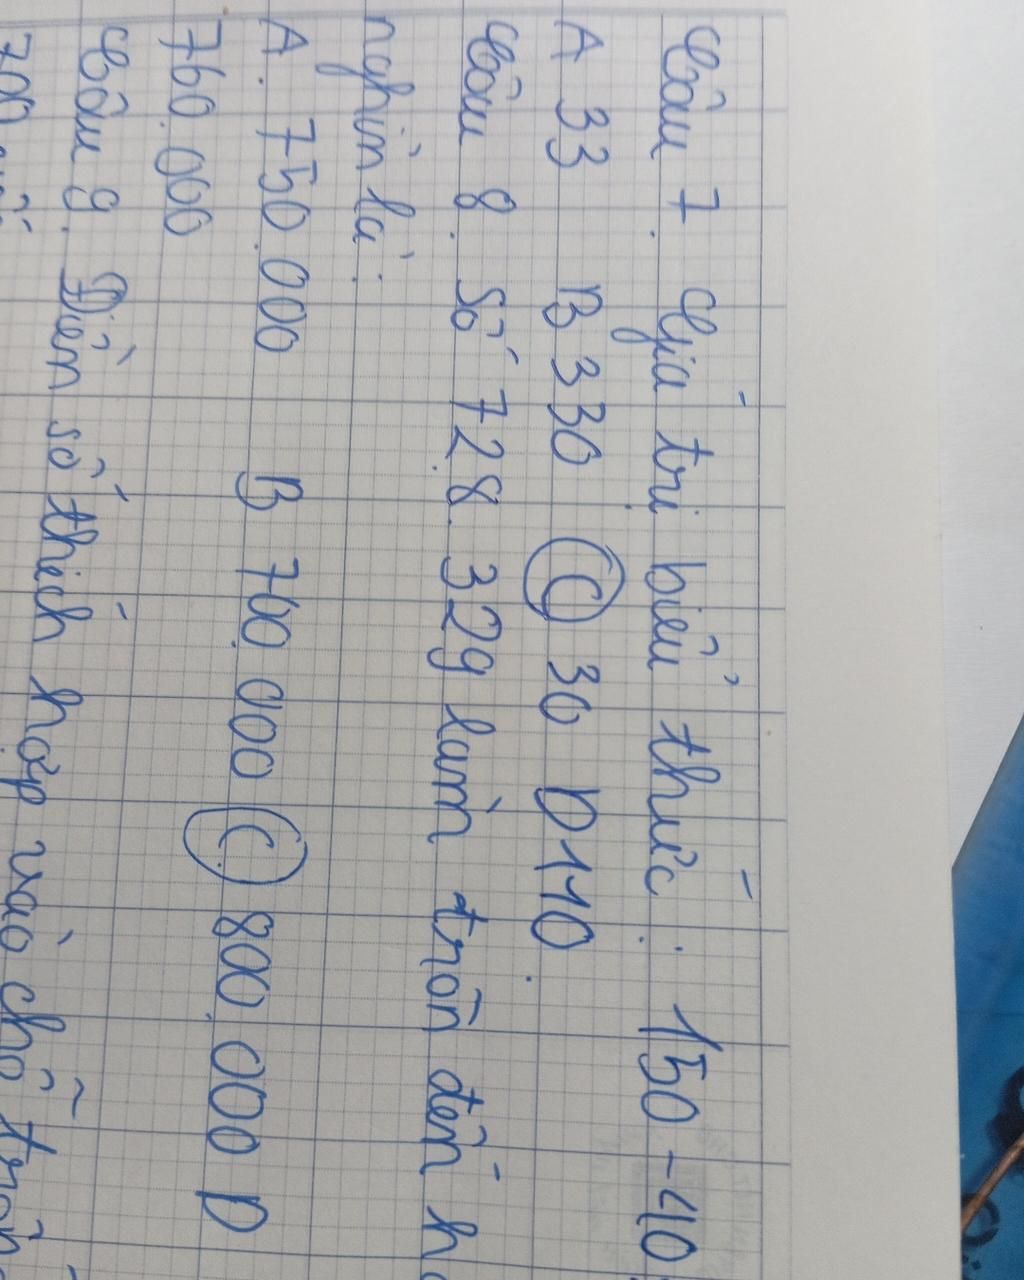 Câu 7. Giá trị biểu thức : 150 - 40
A 33 B 330 C 30 D 110.
Câu 8. Số 728.329 làm tròn đến
nghìn là:
A. 750.000 B 700.000 C. 800.000 D
760.000
Câu 9. Điền số thích hợp vào chỗ trốn
700